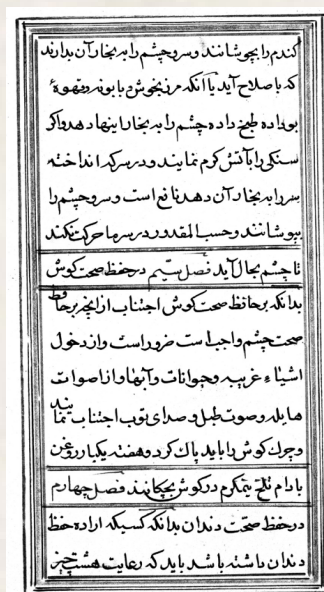 کندم را بجوشانند و سر و چشم را به بخار آن بدارند
که با صلاح آید یا آنکه مرزنجوش و بابونه و قهوهٔ
بوداده طبخ داده چشم را به بخار اینها دهد و اگر
سنکی را بآتش کرم نمایند و در سرکه انداخته
سر را به بخار آن دهد نافع است و سر و چشم را
بپوشانند و حسب المقدور در سرما حرکت نکند
تا چشم بحال آید فصل سیّم در حفظ صحت کوش
بدانکه بر حافظ صحت کوش اجتناب از انچه بر حافظ
صحت چشم واجب است ضرور است و از دخول
اشیاء غریبه و حیوانات و آبها و از اصوات
هایله و صوت طبل و صدای توپ اجتناب نمایند
و چرک کوش را باید پاک کرد و هفته یکبار روغن
بادام تلخ نیمکرم در کوش بچکانند فصل چهارم
در حفظ صحّت دندان بدانکه کسیکه اراده حفظ
دندان داشته باشد باید که رعایت هشت چیز